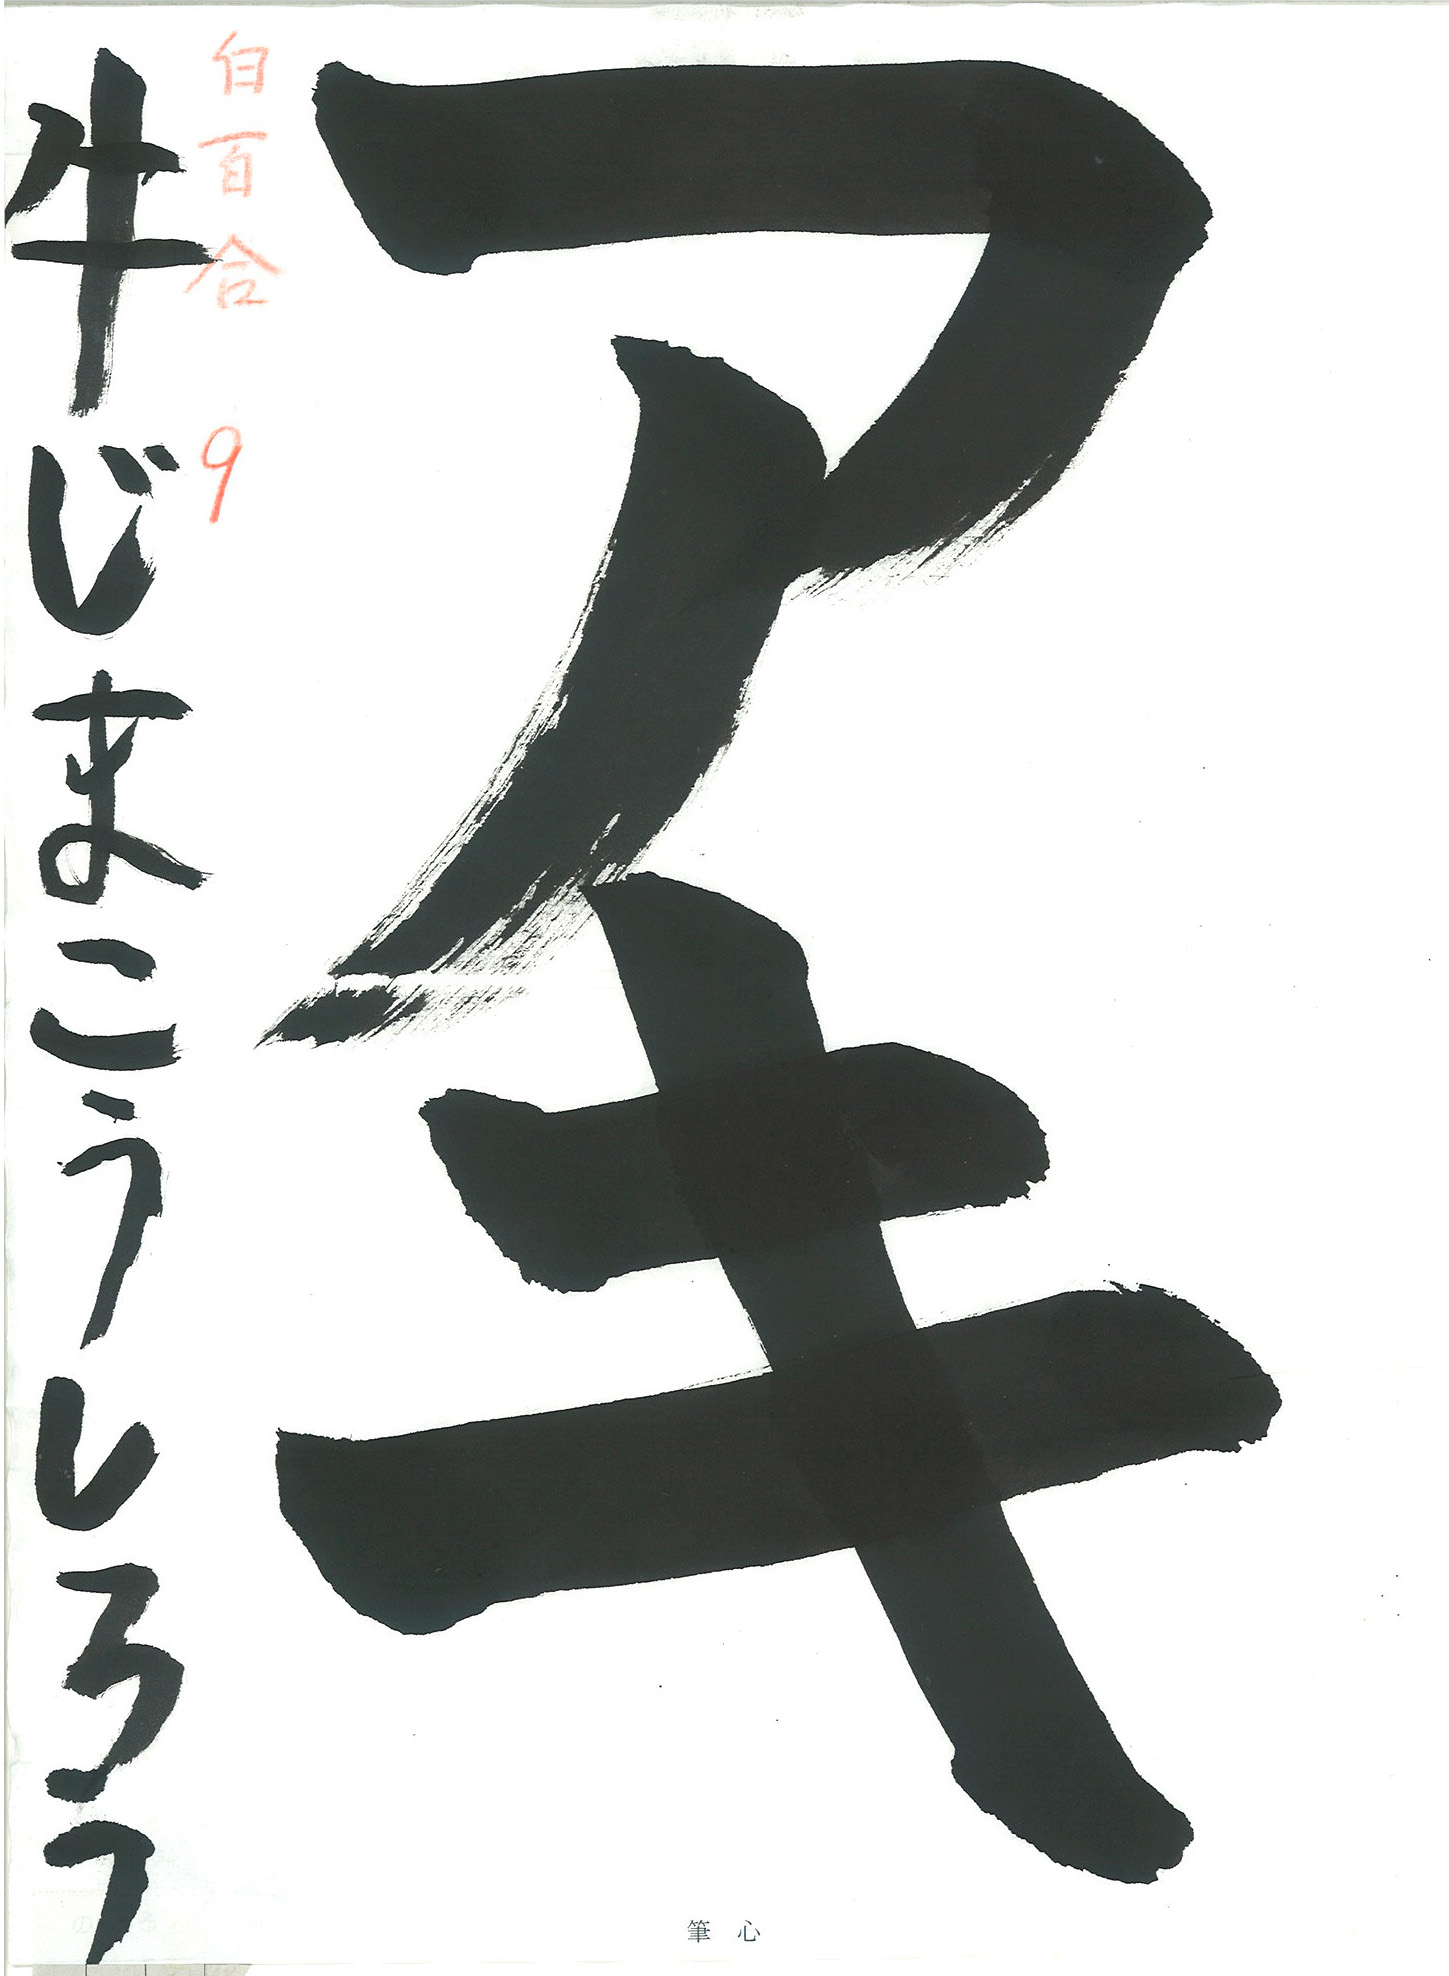 アキ
白百合 9
牛じまこうしろう
筆心